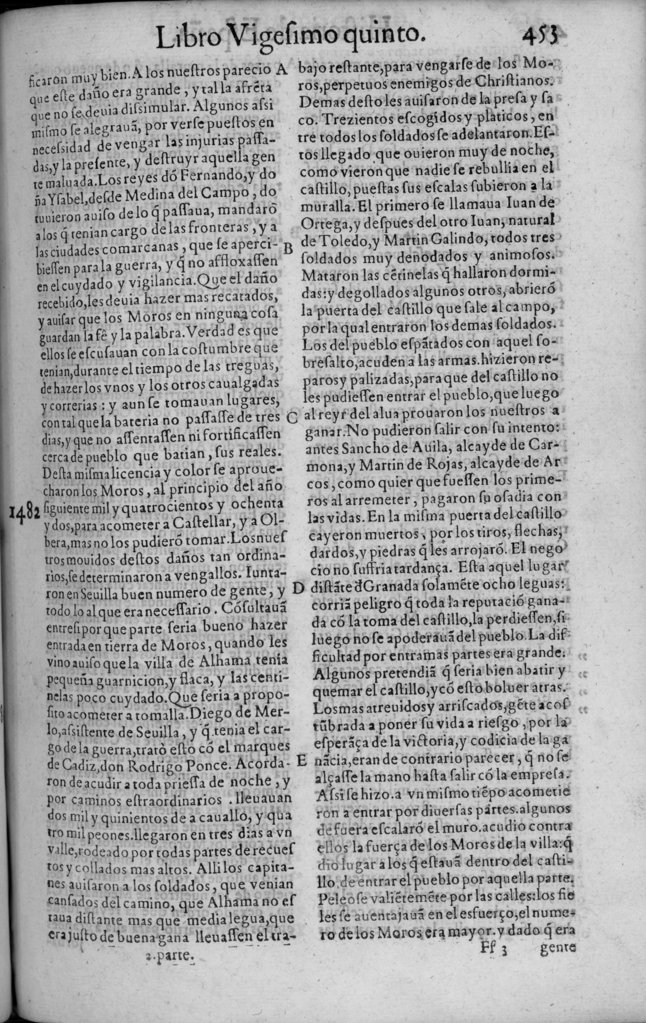 Libro Vigesimo quinto. 453
ficaron muy bien. A los nuestros parecio
que este daño era grande, y tal la afrẽta
que no se deuia dissimular. Algunos assi
mismo se alegrauã, por verse puestos en
necessidad de vengar las injurias passa-
das, y la presente, y destruyr aquella gen
te maluada. Los reyes dõ Fernando, y do
ña Ysabel, desde Medina del Campo, do
tuuieron auiso de lo q̃ passaua, mandarõ
a los q̃ tenian cargo de las fronteras, y a
las ciudades comarcanas, que se aperci-
biessen para la guerra, y q̃ no affloxassen
en el cuydado y vigilancia. Que el daño
recebido, les deuia hazer mas recatados,
y auisar que los Moros en ninguna cosa
guardan la fê y la palabra. Verdad es que
ellos se escusauan con la costumbre que
tenian, durante el tiempo de las treguas,
de hazer los vnos y los otros caualgadas
y correrias: y aun se tomauan lugares,
con tal que la bateria no passasse de tres
dias, y que no assentassen ni fortificassen
cerca de pueblo que batian, sus reales.
Desta misma licencia y color se aproue-
charon los Moros, al principio del año
1482 siguiente mil y quatrocientos y ochenta
y dos, para acometer a Castellar, y a Ol-
bera, mas no los pudierõ tomar. Los nues
tros mouidos destos daños tan ordina-
rios, se determinaron a vengallos. Iunta-
ron en Seuilla buen numero de gente, y
todo lo al que era necessario. Cõsultauã
entre si por que parte seria bueno hazer
entrada en tierra de Moros, quando les
vino auiso que la villa de Alhama tenia
pequeña guarnicion, y flaca, y las centi-
nelas poco cuydado. Que seria a propo-
sito acometer a tomalla. Diego de Mer-
lo, assistente de Seuilla, y q̃ tenia el car-
go de la guerra, tratò esto cõ el marques
de Cadiz, don Rodrigo Ponce. Acorda-
ron de acudir a toda priessa de noche, y
por caminos estraordinarios. lleuauan
dos mil y quinientos de a cauallo, y qua
tro mil peones. llegaron en tres dias a vn
valle, rodeado por todas partes de recues
tos y collados mas altos. Alli los capita-
nes auisaron a los soldados, que venian
cansados del camino, que Alhama no es
taua distante mas que media legua, que
era justo de buena gana lleuassen el tra-
2. parte.
A
B
C
D
E
bajo restante, para vengarse de los Mo-
ros, perpetuos enemigos de Christianos.
Demas desto les auisaron de la presa y sa
co. Trezientos escogidos y platicos, en
tre todos los soldados se adelantaron. Es-
tos llegado que ouieron muy de noche,
como vieron que nadie se rebullia en el
castillo, puestas sus escalas subieron a la
muralla. El primero se llamaua Iuan de
Ortega, y despues del otro Iuan, natural
de Toledo, y Martin Galindo, todos tres
soldados muy denodados y animosos.
Mataron las cẽtinelas q̃ hallaron dormi-
das: y degollados algunos otros, abrierõ
la puerta del castillo que sale al campo,
por la qual entraron los demas soldados.
Los del pueblo espãtados con aquel so-
bresalto, acuden a las armas. hizieron re-
paros y palizadas, para que del castillo no
les pudiessen entrar el pueblo, que luego
al reyr del alua prouaron los nuestros a
ganar. No pudieron salir con su intento:
antes Sancho de Auila, alcayde de Car-
mona, y Martin de Rojas, alcayde de Ar
cos, como quier que fuessen los prime-
ros al arremeter, pagaron su osadia con
las vidas. En la misma puerta del castillo
cayeron muertos, por los tiros, flechas,
dardos, y piedras q̃ les arrojarõ. El nego
cio no suffria tardança. Esta aquel lugar
distãte đ Granada solamẽte ocho leguas:
corriã peligro q̃ toda la reputaciõ gana-
da cõ la toma del castillo, la perdiessen, si
luego no se apoderauã del pueblo. La dif-
ficultad por entramas partes era grande.
Algunos pretendiã q̃ seria bien abatir y
quemar el castillo, y cõ esto boluer atras.
Los mas atreuidos y arriscados, gẽte acos
tũbrada a poner su vida a riesgo, por la
esperãça de la victoria, y codicia de la ga
nãcia, eran de contrario parecer, q̃ no se
alçasse la mano hasta salir cõ la empresa.
Assi se hizo. a vn mismo tiẽpo acometie
ron a entrar por diuersas partes. algunos
de fuera escalarõ el muro. acudio contra
ellos la fuerça de los Moros de la villa: q̃
dio lugar a los q̃ estauã dentro del casti-
llo, de entrar el pueblo por aquella parte.
Peleose valiẽtemẽte por las calles: los fie
les se auentajauã en el esfuerço, el nume-
ro de los Moros era mayor. y dado q̃ era
Ff 3 gente